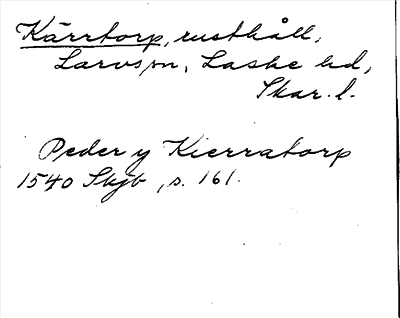 Kärrtorp, rusthåll,
Larvs sn, Laske hd,
Skar. l.
Peder y Kierratorp
1540 Skjb, s. 161.